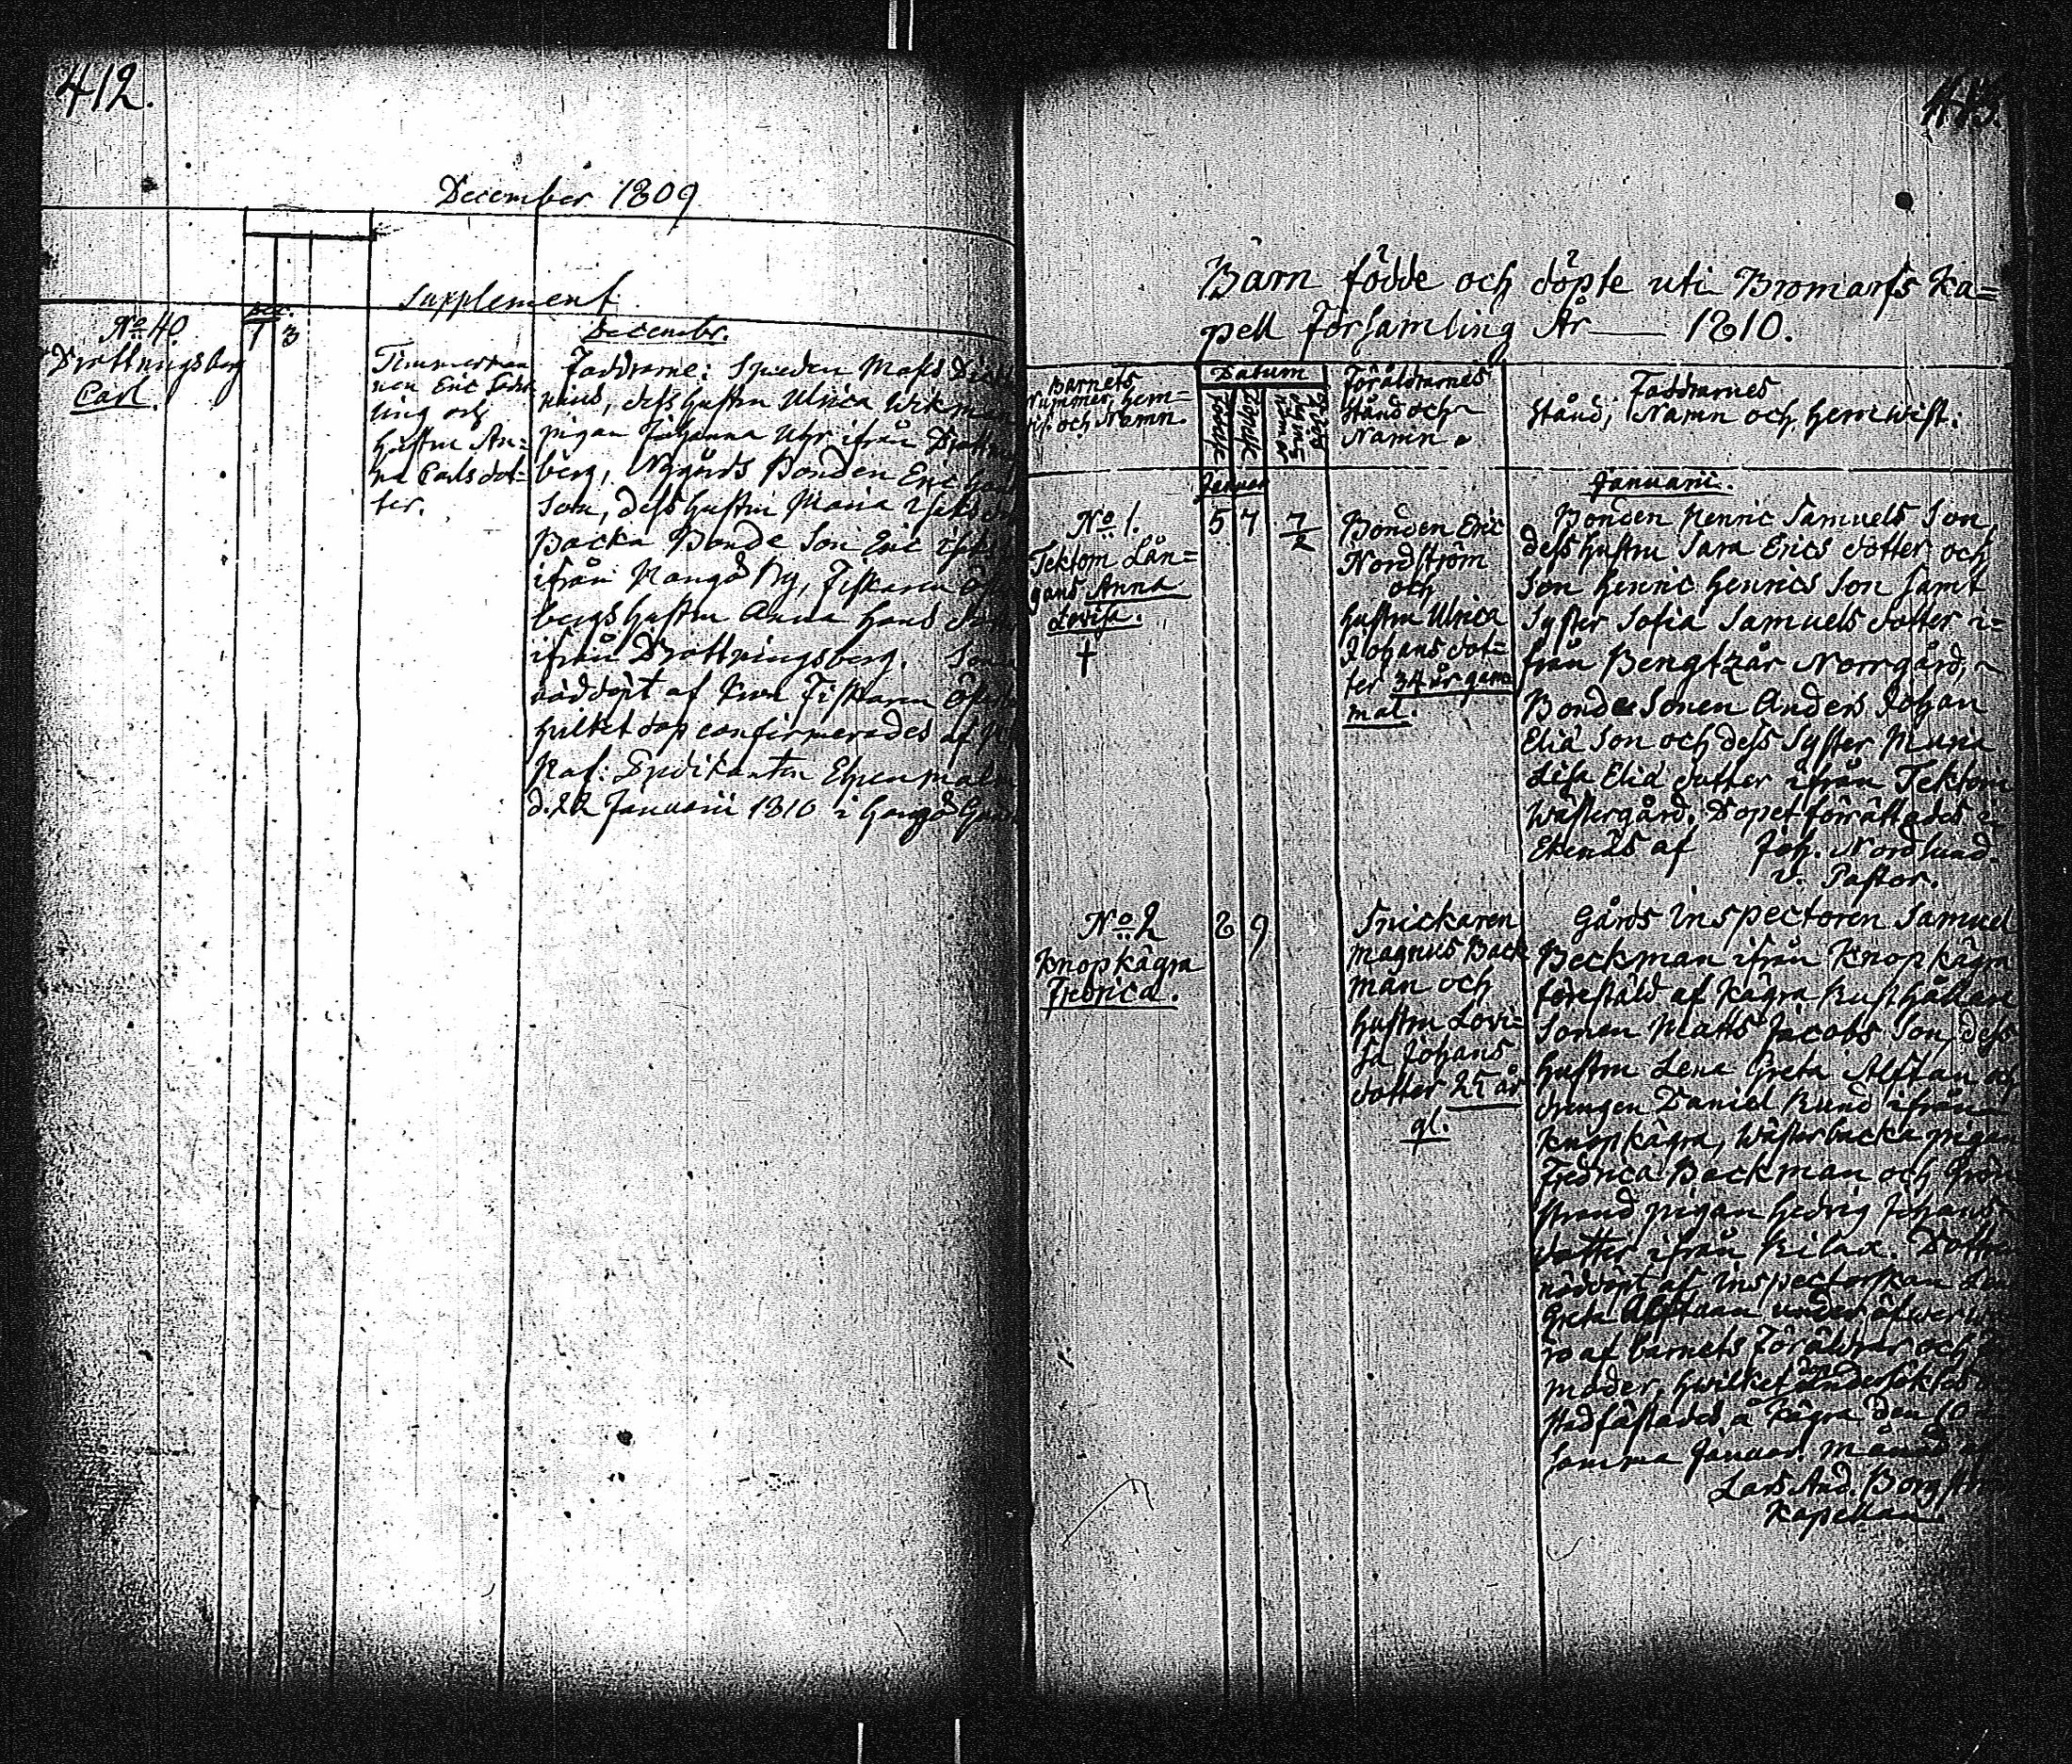 412.
December 1809
Supplement
Decembr.
No 40.
Drottningsberg
Carl.
Dec.
1 3
Timmerman
nen Eric
ling och
hustru An=
na Carlsdot=
ter.
Faddrarne: Smeden Mats
dess hustru Ulrica Wikm
pigan Johanna Uhr ifrån Drottn
berg, Nygårds Bonden Eric
Son, dess hustru Maria
Backa Bonde Son Eric
ifrån Hangö By, Fiskaren
bergs hustru Anna Hans
ifrån Drottningsberg. Son
nöddöpt af Fiskaren
hvilket dop confirmerades af
Predikanten Ehrenmalm
d. 22 Januarii 1810 i Hangö
413.
Barn födde och döpte uti Bromarfs Ka=
pell Församling År — 1810.
Barnets
Nummer, hem=
vist och Namn.
Datum
Födde
Döpte
Föräldrarnes
Stånd och
Namn.
Faddrarnes
Stånd, Namn och hemwist.
Januar
Januarii.
No 1.
Tektom Lån=
gans Anna
Lovisa.
†
5 7 7/2
Bonden Eric
Nordström
och
hustru Ulrica
Johans dot=
ter 34 år gam
mal.
Bonden Henric Samuels Son,
dess hustru Sara Erics dotter och
Son Henric Henrics Son samt
Syster Sofia Samuels dotter i=
från Bengtzår Norrgård,
Bonde Sonen Anders Johan
Eliæ Son och dess Syster Maria
Lisa Eliæ dotter ifrån Tektom
Wästergård. Dopet förrättades i
Ekenäs af Joh. Nordlund.
v. Pastor.
No 2
Knopkägra
Fredrica.
8 9
Snickaren
Magnus Back
man och
hustru Lovi=
sa Johans
dotter 25 år
gl.
Gårds Inspectoren Samuel
Beckman ifrån Knopkägra
föreståld af Kägra Rusthållare
Sonen Matts Jacobs Son, dess
hustru Lena Greta Alftan och
drengen Daniel Rund ifrån
Knopkägra, Wästerbacka pigan
Fredrica Backman och Grön
strand pigan Hedvig Johans
dotter ifrån Kilax. Dottren
nöddöpt af Inspectorskan Lena
Greta Alftaan under öfwerwa
ro af barnets Föräldrar och
moder, hwilket undersöktes
stadfästades å Kägra den 10
samma Januar. månad af
Lars And. Borgström
Kapellan.